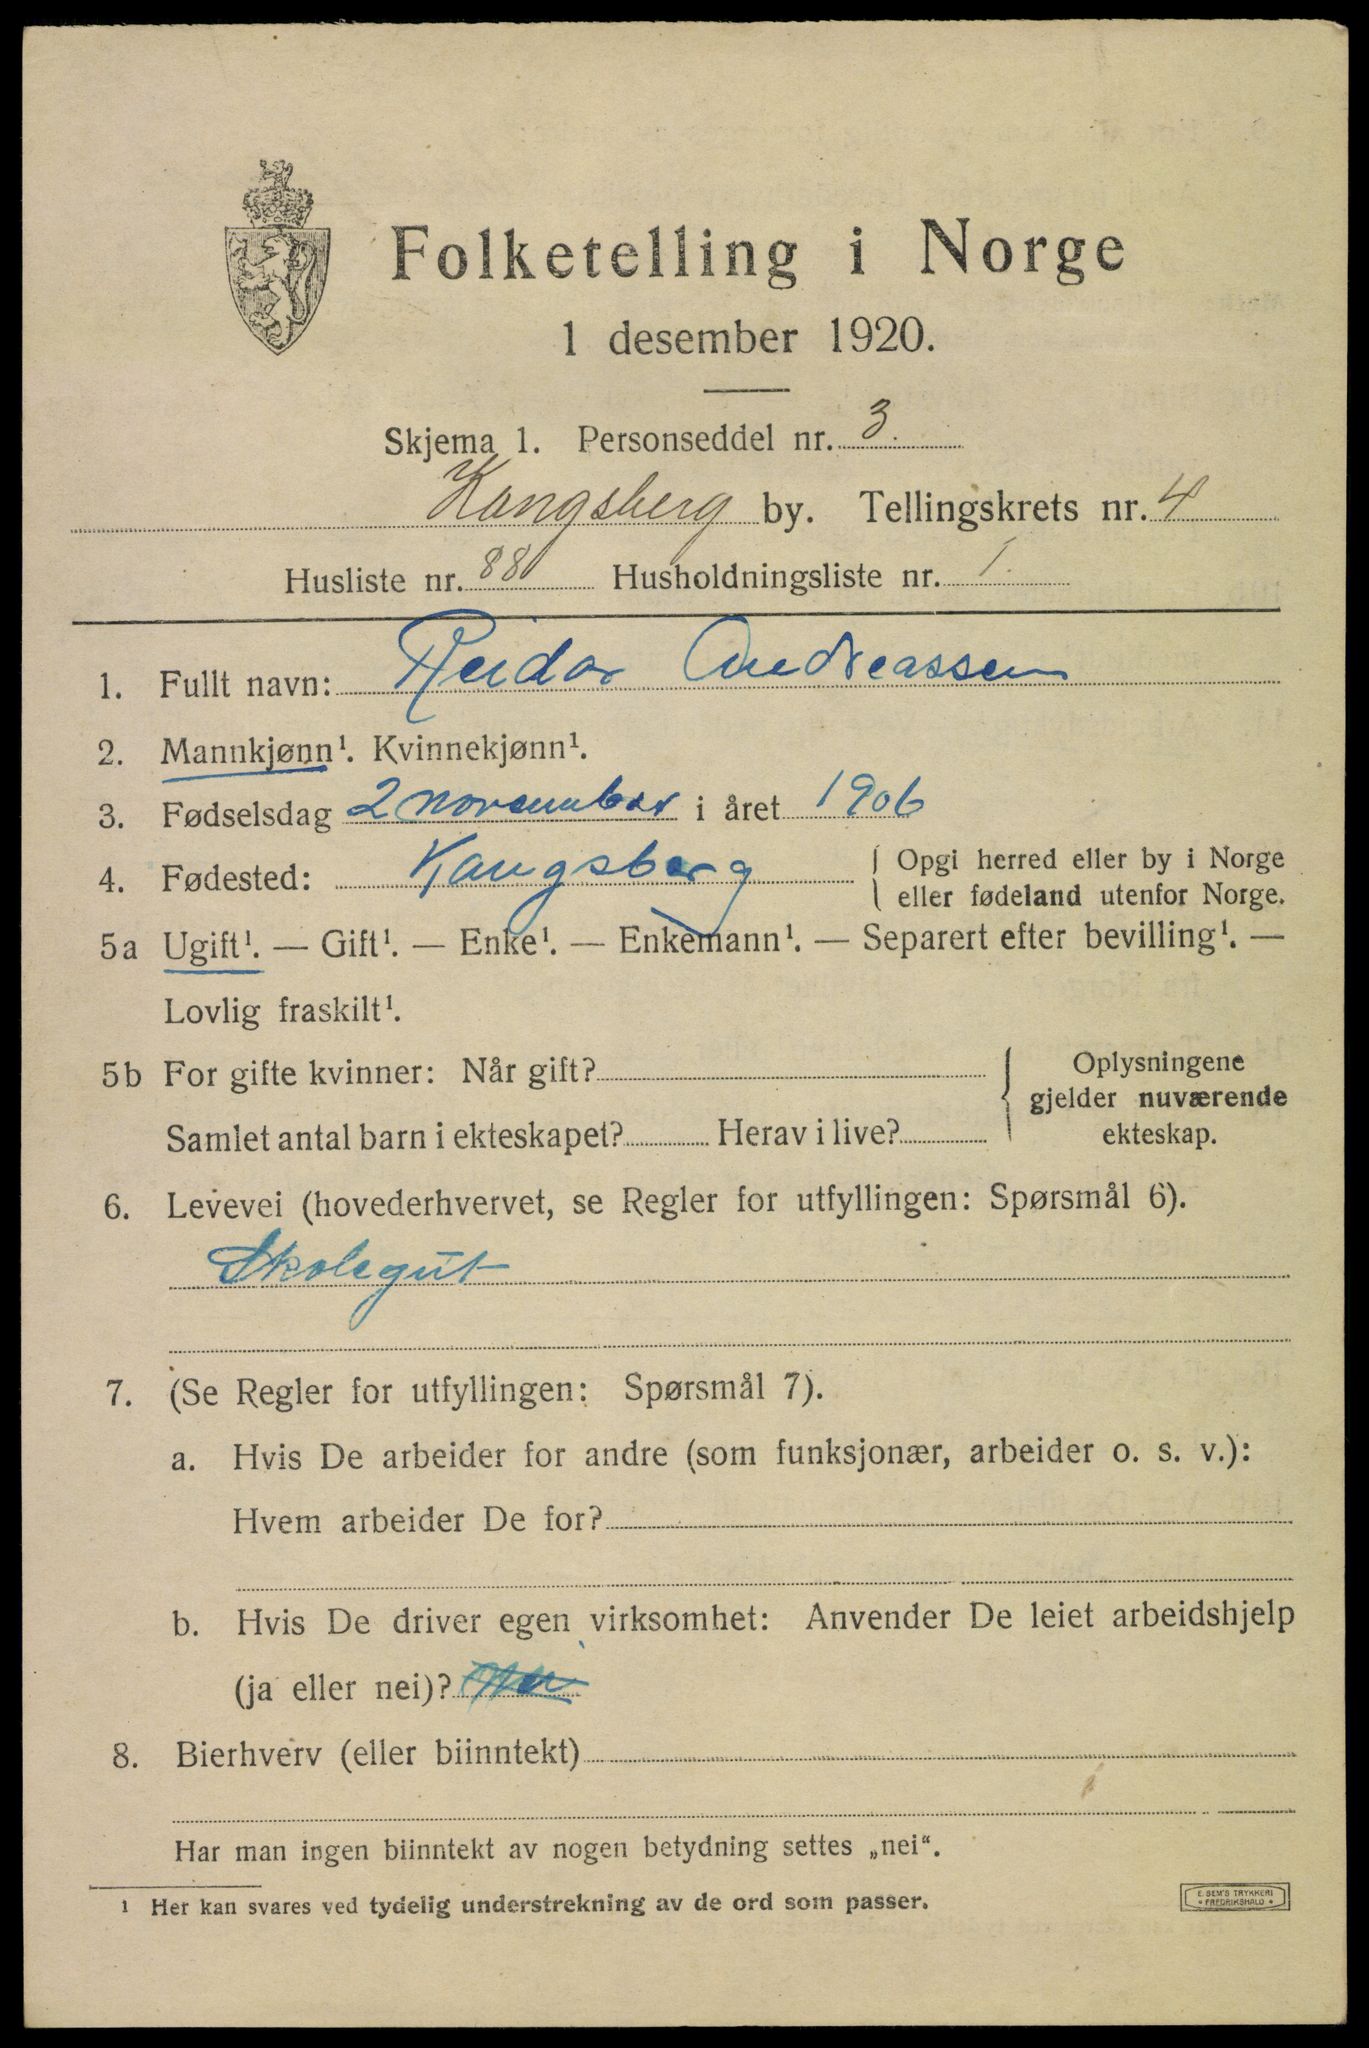 Folketelling i Norge
1 desember 1920.
Skjema 1. Personseddel nr. 3.
Kongsberg by. Tellingskrets nr. 4
Husliste nr. 88 Husholdningsliste nr. 1.
1. Fullt navn: Reidar Andreassen
2. Mannkjønn¹. Kvinnekjønn¹.
3. Fødselsdag 2 november i året 1906
4. Fødested: Kongsberg { Opgi herred eller by i Norge
eller fødeland utenfor Norge.
5a Ugift¹. — Gift¹. — Enke¹. — Enkemann¹. — Separert efter bevilling¹. —
Lovlig fraskilt¹.
5b For gifte kvinner: Når gift? { Oplysningene
gjelder nuværende
Samlet antal barn i ekteskapet? Herav i live? ekteskap.
6. Levevei (hovederhvervet, se Regler for utfyllingen: Spørsmål 6).
Skolegut
7. (Se Regler for utfyllingen: Spørsmål 7).
a. Hvis De arbeider for andre (som funksjonær, arbeider o. s. v.):
Hvem arbeider De for?
b. Hvis De driver egen virksomhet: Anvender De leiet arbeidshjelp
(ja eller nei)? Nei
8. Bierhverv (eller biinntekt)
Har man ingen biinntekt av nogen betydning settes „nei“.
¹ Her kan svares ved tydelig understrekning av de ord som passer.
E. SEM'S TRYKKERI
• FREDRIKSHALD •